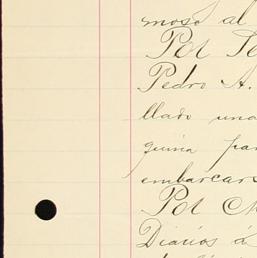 moso al
Pot Te
Pedro A.
llado una
quina par
embarcars
Pot
Diarios á